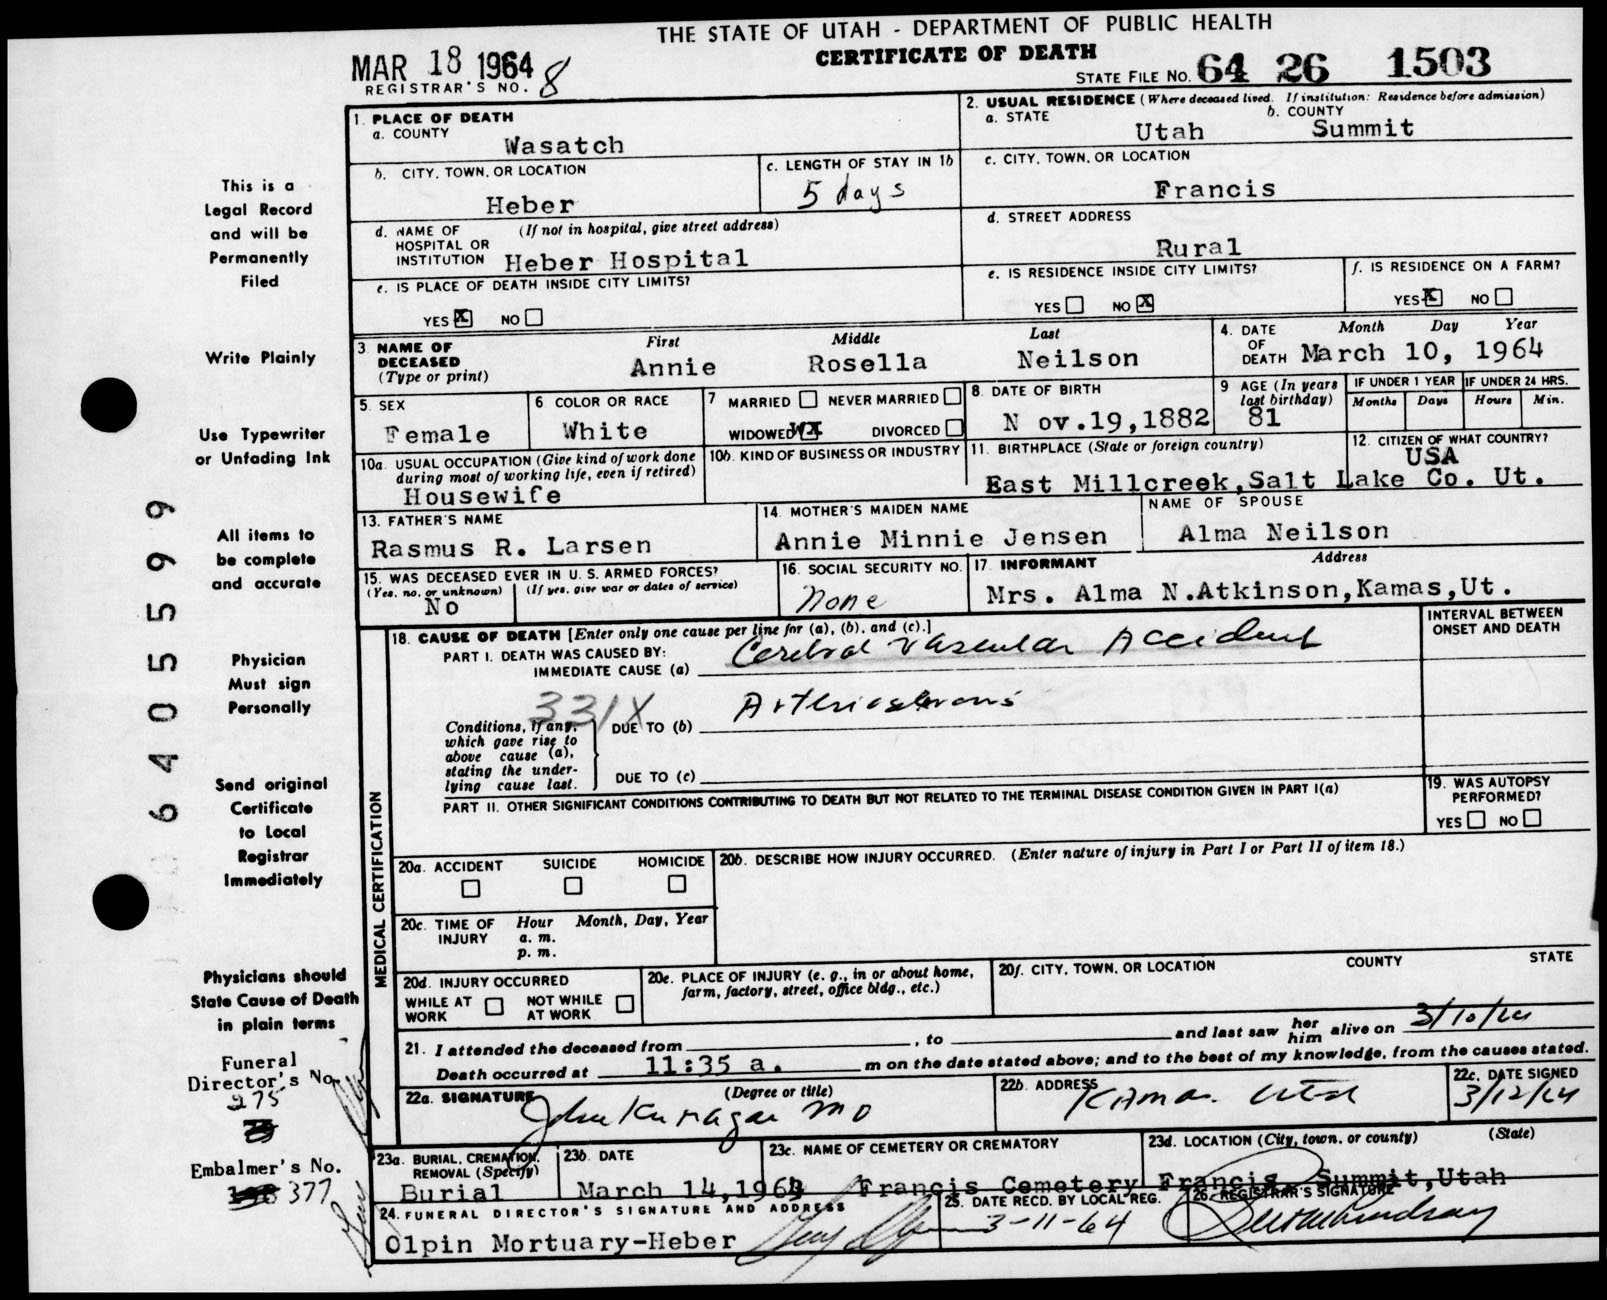 THE STATE OF UTAH - DEPARTMENT OF PUBLIC HEALTH
CERTIFICATE OF DEATH
MAR 18 1964
REGISTRAR'S NO. 8
STATE FILE NO. 64 26 1503
This is a
Legal Record
and will be
Permanently
Filed
Write Plainly
Use Typewriter
or Unfading Ink
All items to
be complete
and accurate
Physician
Must sign
Personally
Send original
Certificate
to Local
Registrar
Immediately
Physicians should
State Cause of Death
in plain terms
Funeral
Director's No.
275
Embalmer's No.
377
64055599
1. PLACE OF DEATH
a. COUNTY
Wasatch
b. CITY, TOWN, OR LOCATION
Heber
c. LENGTH OF STAY IN 1b
5 days
d. NAME OF HOSPITAL OR INSTITUTION
(If not in hospital, give street address)
Heber Hospital
e. IS PLACE OF DEATH INSIDE CITY LIMITS?
YES X NO
2. USUAL RESIDENCE (Where deceased lived. If institution: Residence before admission)
a. STATE
Utah
b. COUNTY
Summit
c. CITY, TOWN, OR LOCATION
Francis
d. STREET ADDRESS
Rural
e. IS RESIDENCE INSIDE CITY LIMITS?
YES NO X
f. IS RESIDENCE ON A FARM?
YES X NO
3 NAME OF DECEASED
(Type or print)
First Middle Last
Annie Rosella Neilson
4. DATE OF DEATH
Month Day Year
March 10, 1964
5. SEX
Female
6 COLOR OR RACE
White
7 MARRIED NEVER MARRIED
WIDOWED X DIVORCED
8. DATE OF BIRTH
N ov.19,1882
9 AGE (In years last birthday)
81
IF UNDER 1 YEAR
Months Days
IF UNDER 24 HRS.
Hours Min.
10a. USUAL OCCUPATION (Give kind of work done during most of working life, even if retired)
Housewife
10b. KIND OF BUSINESS OR INDUSTRY
11. BIRTHPLACE (State or foreign country)
East Millcreek,Salt Lake Co. Ut.
12. CITIZEN OF WHAT COUNTRY?
USA
13. FATHER'S NAME
Rasmus R. Larsen
14. MOTHER'S MAIDEN NAME
Annie Minnie Jensen
NAME OF SPOUSE
Alma Neilson
15. WAS DECEASED EVER IN U. S. ARMED FORCES?
(Yes, no, or unknown) (If yes, give war or dates of service)
No
16. SOCIAL SECURITY NO.
None
17. INFORMANT Address
Mrs. Alma N.Atkinson,Kamas,Ut.
MEDICAL CERTIFICATION
18. CAUSE OF DEATH [Enter only one cause per line for (a), (b), and (c).]
INTERVAL BETWEEN ONSET AND DEATH
PART I. DEATH WAS CAUSED BY:
IMMEDIATE CAUSE (a) Cerebral Vascular Accident
331X
Conditions, if any, which gave rise to above cause (a), stating the underlying cause last.
DUE TO (b)
DUE TO (c)
PART II. OTHER SIGNIFICANT CONDITIONS CONTRIBUTING TO DEATH BUT NOT RELATED TO THE TERMINAL DISEASE CONDITION GIVEN IN PART I(a)
19. WAS AUTOPSY PERFORMED?
YES NO
20a. ACCIDENT SUICIDE HOMICIDE
20b. DESCRIBE HOW INJURY OCCURRED. (Enter nature of injury in Part I or Part II of item 18.)
20c. TIME OF INJURY
Hour Month, Day, Year
a. m.
p. m.
20d. INJURY OCCURRED
WHILE AT WORK NOT WHILE AT WORK
20e. PLACE OF INJURY (e. g., in or about home, farm, factory, street, office bldg., etc.)
20f. CITY, TOWN, OR LOCATION COUNTY STATE
21. I attended the deceased from , to and last saw her him alive on 3/10/64
Death occurred at 11:35 a. m on the date stated above; and to the best of my knowledge, from the causes stated.
22a. SIGNATURE (Degree or title)
MD
22b. ADDRESS
Kamas Utah
22c. DATE SIGNED
3/12/64
23a. BURIAL, CREMATION, REMOVAL (Specify)
Burial
23b. DATE
March 14,1964
23c. NAME OF CEMETERY OR CREMATORY
Francis Cemetery
23d. LOCATION (City, town, or county) (State)
Francis, Summit,Utah
24. FUNERAL DIRECTOR'S SIGNATURE AND ADDRESS
Olpin Mortuary-Heber
25. DATE RECD. BY LOCAL REG.
3-11-64
26. REGISTRAR'S SIGNATURE